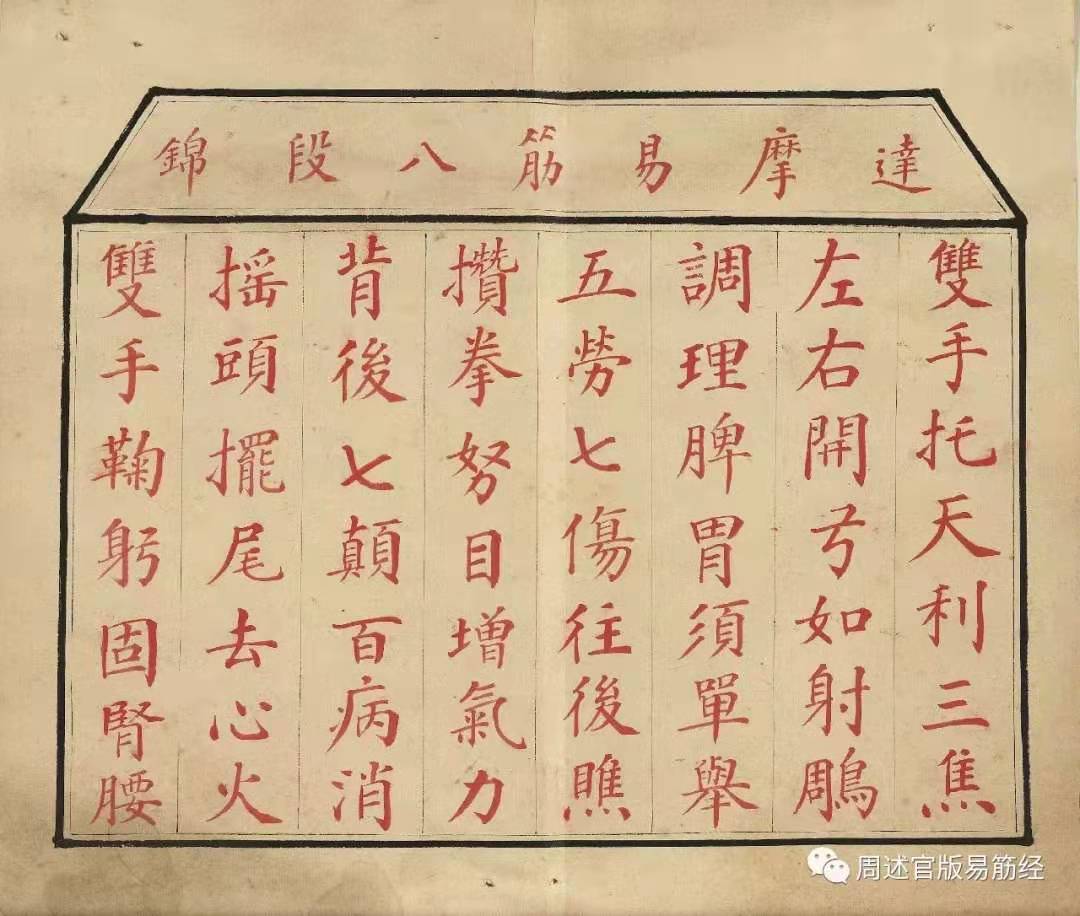 達摩易筋八段錦
雙手托天利三焦
左右開弓如射鵰
調理脾胃須單舉
五勞七傷往後瞧
攢拳努目增氣力
背後七顛百病消
搖頭擺尾去心火
雙手鞠躬固腎腰
周述官版易筋经